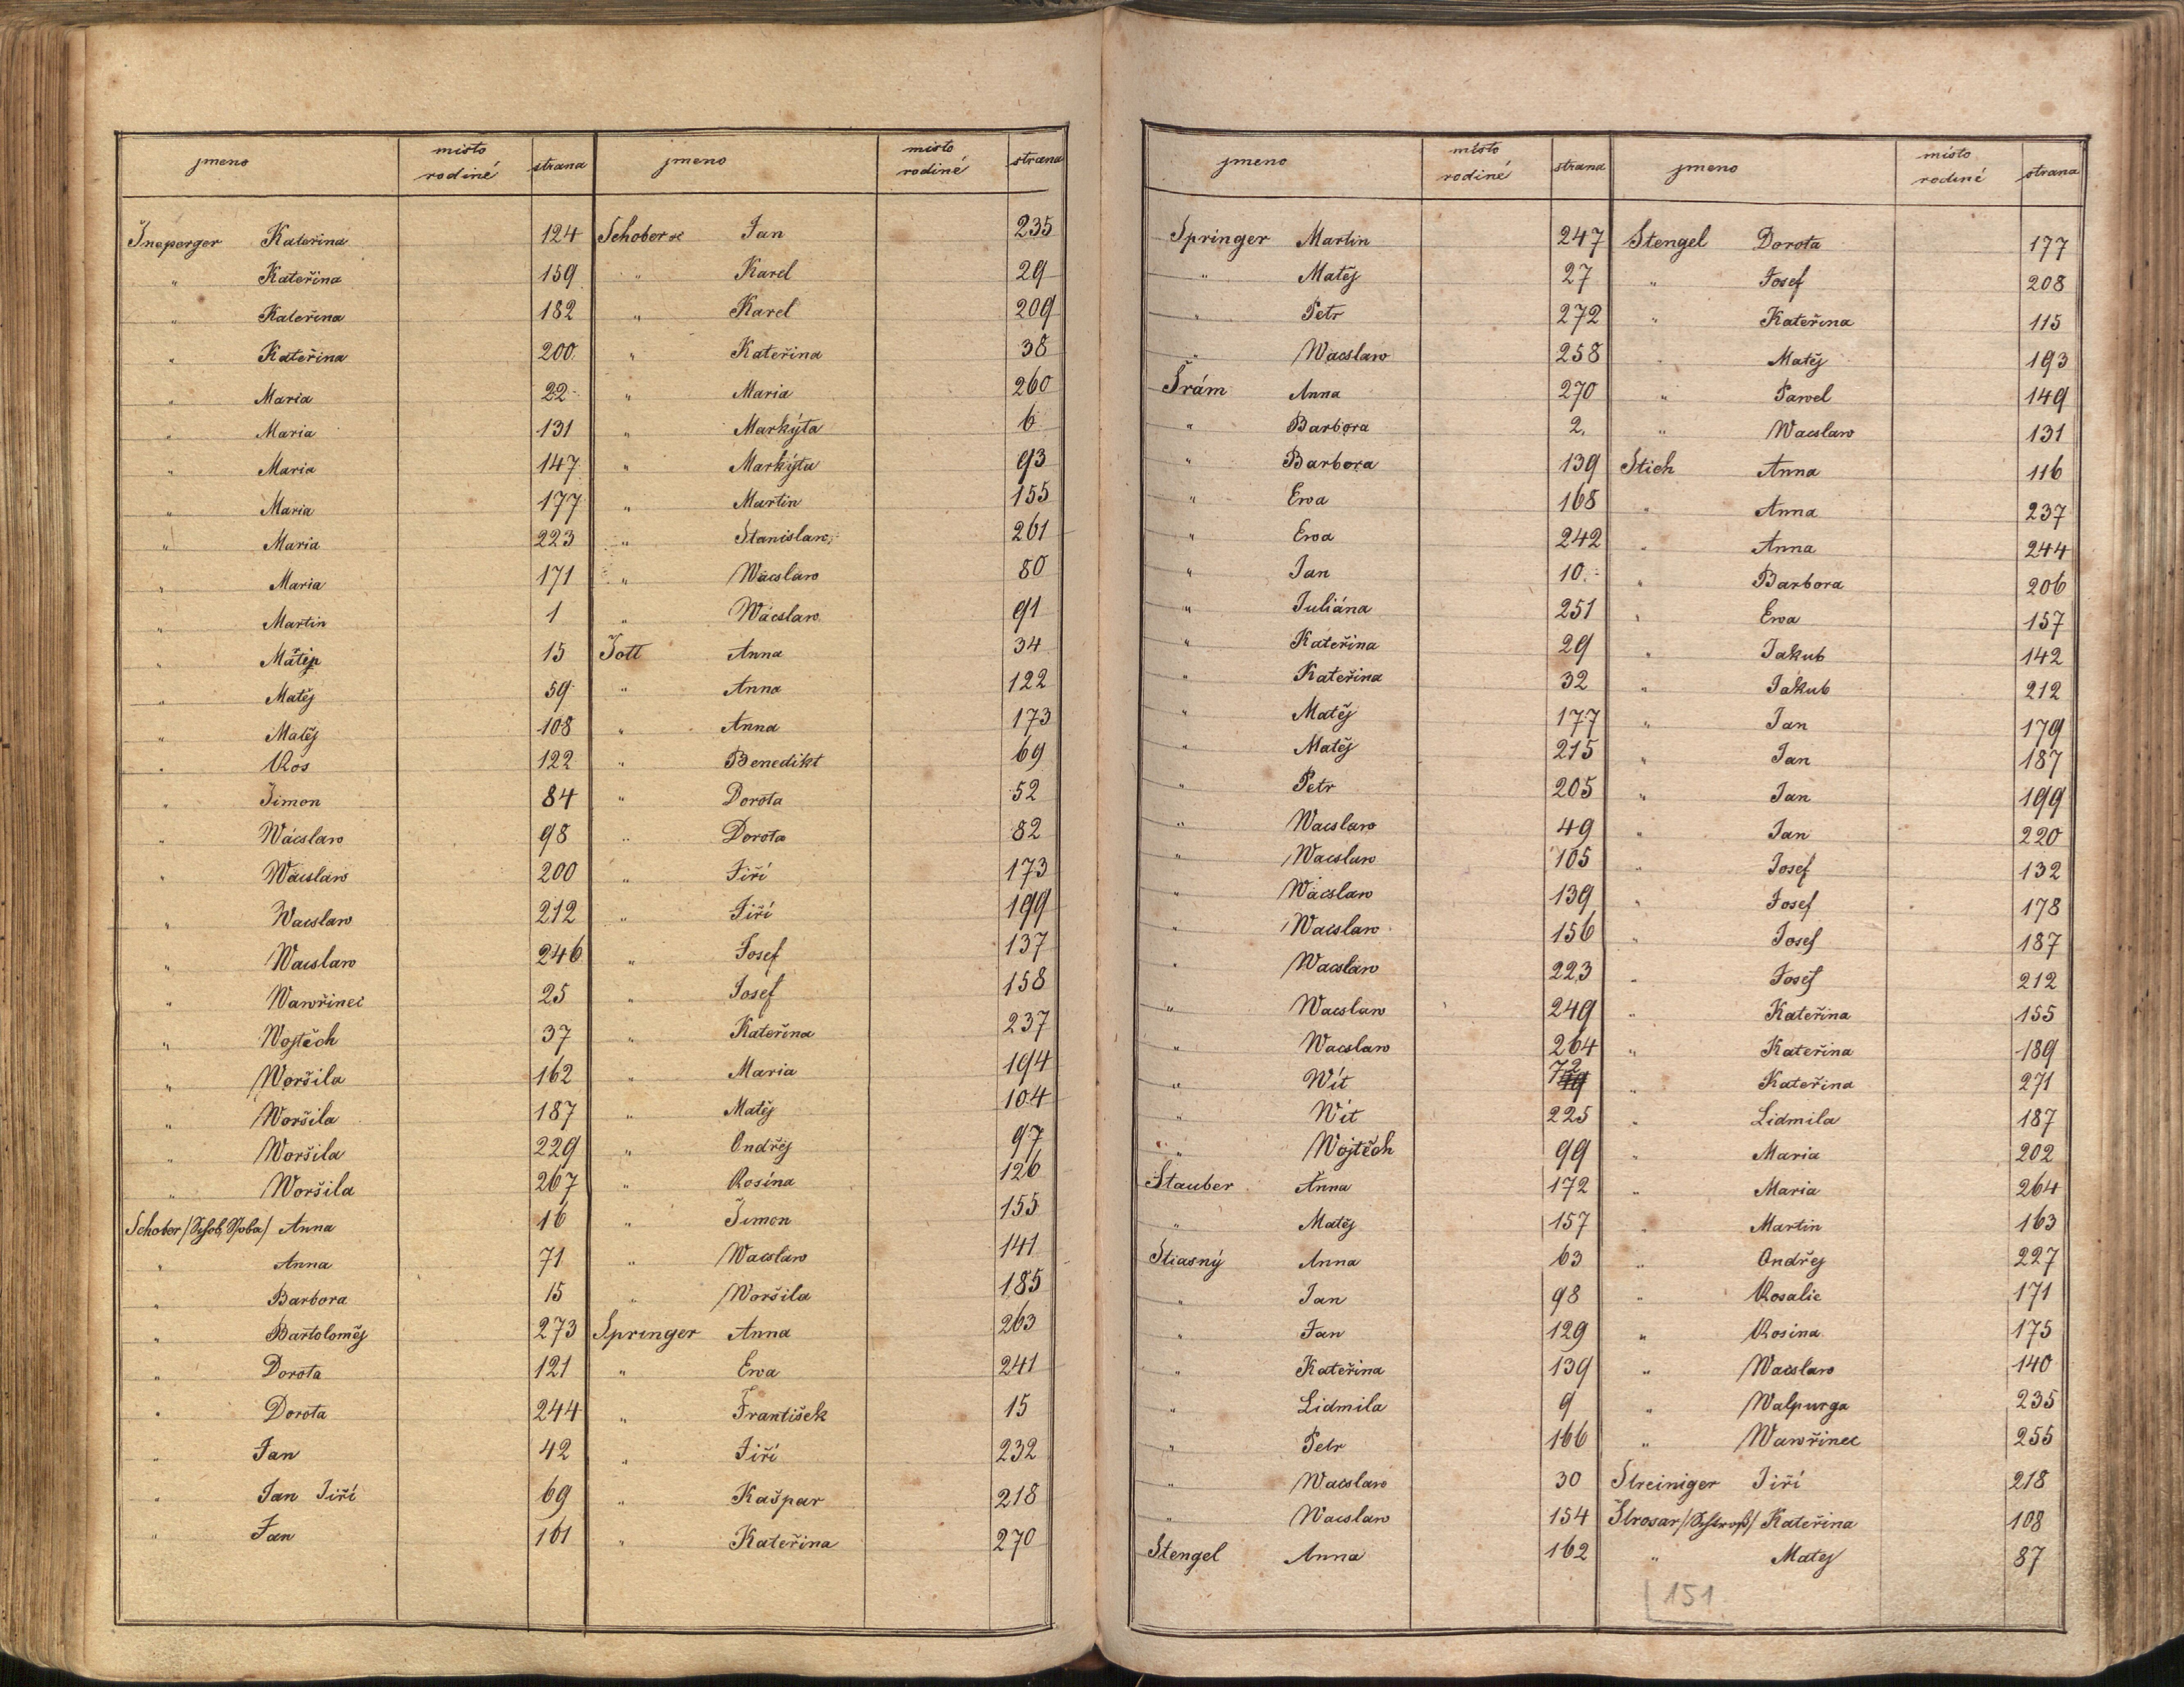 jmeno místo rodiné strana
Šneperger Kateřina 124
" Kateřina 159
" Kateřina 182
" Kateřina 200
" Maria 22
" Maria 131
" Maria 147
" Maria 177
" Maria 223
" Maria 171
" Martin 1
" Matěj 15
" Matěj 59
" Matěj 108
" Ros 122
" Šimon 84
" Wácslaw 98
" Wácslaw 200
" Wacslaw 212
" Wacslaw 246
" Wawřinec 25
" Wojtěch 37
" Woršila 162
" Woršila 187
" Woršila 229
" Woršila 267
Schober / Anna 16
" Anna 71
" Barbora 15
" Bartoloměj 273
" Dorota 121
" Dorota 244
" Jan 42
" Jan Jiří 69
" Jan 161
jmeno místo rodiné strana
Schober Jan 235
" Karel 29
" Karel 209
" Kateřina 38
" Maria 260
" Markýta 6
" Markýta 93
" Martin 155
" Stanislaw 261
" Wácslaw 80
" Wácslaw 91
Šott Anna 34
" Anna 122
" Anna 173
" Benedikt 69
" Dorota 52
" Dorota 82
" Jiří 173
" Jiří 199
" Josef 137
" Josef 158
" Kateřina 237
" Maria 194
" Matěj 104
" Ondřej 97
" Rosina 126
" Šimon 155
" Wacslaw 141
" Woršila 185
Springer Anna 263
" Ewa 241
" František 15
" Jiří 232
" Kašpar 218
" Kateřina 270
jmeno místo rodiné strana
Springer Martin 247
" Matěj 27
" Petr 272
" Wácslaw 258
Šrám Anna 270
" Barbora 2.
" Barbora 139
" Ewa 168
" Ewa 242
" Jan 10
" Juliána 251
" Kateřina 29
" Kateřina 32
" Matěj 177
" Matěj 215
" Petr 205
" Wacslaw 49
" Wacslaw 105
" Wácslaw 139
" Wacslaw 156
" Wacslaw 223
" Wacslaw 249
" Wacslaw 264
" Wít 72
" Wít 225
" Wojtěch 99
Stauber Anna 172
" Matěj 157
Stiasný Anna 63
" Jan 98
" Jan 129
" Kateřina 139
" Lidmila 9
" Petr 166
" Wácslaw 30
" Wacslaw 154
Stengel Anna 162
jmeno místo rodiné strana
Stengel Dorota 177
" Josef 208
" Kateřina 115
" Matěj 193
" Pawel 149
" Wacslaw 131
Stich Anna 116
" Anna 237
" Anna 244
" Barbora 206
" Ewa 157
" Jakub 142
" Jakub 212
" Jan 179
" Jan 187
" Jan 199
" Jan 220
" Josef 132
" Josef 178
" Josef 187
" Josef 212
" Kateřina 155
" Kateřina 189
" Kateřina 271
" Lidmila 187
" Maria 202
" Maria 264
" Martin 163
" Ondřej 227
" Rosalie 171
" Rosina 175
" Wacslaw 140
" Walpurga 235
" Wawřinec 255
Streiniger Jiří 218
Štrosar / Kateřina 108
" Matej 87
151